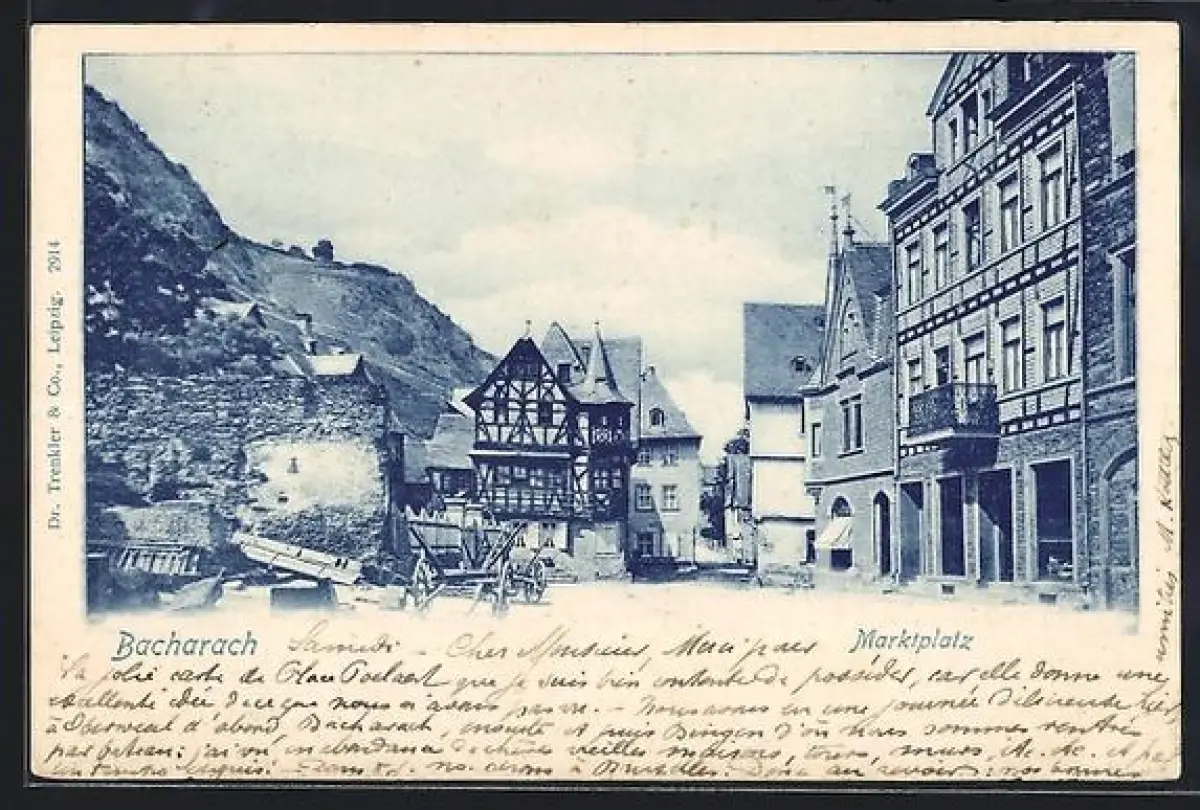 Dr. Trenkler & Co., Leipzig. 2914
Bacharach
Marktplatz
Samedi - Cher Monsieur, Merci pour
la jolie carte de que je suis bien contente de posséder, car elle donne une
excellente idée de ce que nous n'avons pas vu. - Nous avons eu une journée délicieuse hier,
à Oberwesel d'abord Bacharach, ensuite et puis Bingen d'où nous sommes rentrés
par bateau: j'ai vu en abondance de chères vieilles maisons, tours, murs, &c. &c. et
un temps exquis! nous serons à Bruxelles. Donc au revoir: vos bonnes
amitiés M.